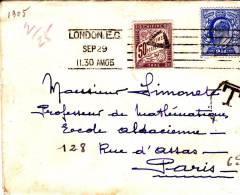 1905
LONDON. E.C.
SEP 29
11.30 AM 05
50
T
Monsieur Simonet
Professeur de Mathématiques
Ecole alsacienne
128 Rue d'assas
Paris